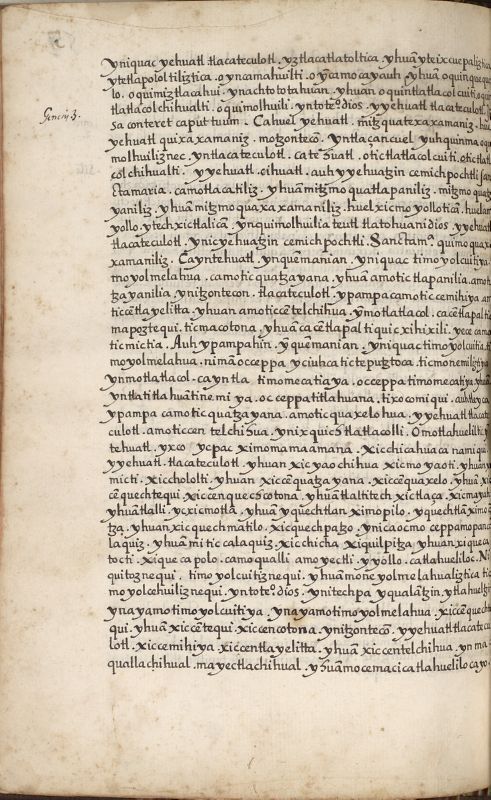 Genesis 3.
yniquac yehuatl tlacateculotl. yztlacatlatoltica, yhuã yteixcuepaliztica
ytetlapololtiliztica. oyncamahuilti. oyc̃amocayauh. yhuã. oquinque
lo. oquimiztlacahui. ynachtotota huan. yhuan oquintlatlacolcuiti. o
tlatlacolchihualti. oq̃uimolhuili. yntote.º dios. yyehuatl tlacateculotl.
sa conteret caput tuum. Cahuel yehuatl. mitz quatexaxamaniz.
yehuatl quixaxamaniz. motzonteco. yntlaçancuel yuhquinma
molhuiliznec. yntlacateculotl. cate huatl. otictlatlacolcuiti. otictla
colchihualti. yyehuatl. cihuatl. auh yyehuatzin cemichpochtli san
cta maria. camotlacatiliz. yhuan mitzmoquatlapaniliz. mitzmo
yaniliz. yhuan mitzmoquaxaxamaniliz. huelxicmoyollotican.
yollo. ytechxictlalicã. ynquimolhuilia teutl tlatohuanidios. yyehuatl
tlacateculotl. ynicyehuatzin cemichpochtli. Sanctam.ª quimoquaxa
xamaniliz. Cayntehuatl. ynquemanian. yniquac timoyolcuitiya.
moyolmelahua. camotic quatzayana. yhuã amotictlapanilia. amo
tzayanilia ynitzontecon. tlacateculotl. ypampa camoticcemihiya am
ticcẽtlayelitta. yhuan amoticcẽtelchihua. yn motlatlacol. cacẽtlapal
mapoztequi. ticmacotona. yhuã cacẽtlapal tiquicxihixili. yece camo
ticmictia. Auh ypampahin. yquemanian. yniquac timoyolcuitia.
moyolmelahua. nimã occeppa yciuhca ticteputztoca. ticmonemilizti
ynmotlatlacol. cayntla timomecatiaya. occeppa timomecatiya yhuã
yntlatitlahuãtinemiya. occeppa titlahuana. tixocomiqui. auhtlayca
ypampa camotic quatzayana. amotic quaxelohua. yyehuatl tlacate
culotl. amoticcen telchihua. ynixquich tlatlacolli. Omotlahuelilti
tehuatl. yxco ycpac ximomamamana. xicchicahuacanamiqui.
yyehuatl. tlacateculotl. yhuan xicyaochihua xicmoyaoti. yhuan
micti. xiccholoti. yhuan xiccẽquatzayana. xiccẽquaxelo. yhuã
cẽquechtequi xiccenquechcotona. yhuãtlaltitech xictlaça. xicmayahui
yhuãtlalli. ycxicmotla. yhuã yquechtlan ximopilo. yquechtlãximo
tza. yhuanxicquechmatilo. xicquechpatzo. ynicaocmo ceppamopan
laquiz. yhuan mitic calaquiz. xicchicha xiquilpitza yhuanxiqueca
tocti. xiquecapolo. camoqualli amoyectli. yyollo. catlahueliloc.
quitoznequi. timoyolcuitiznequi. yhuãmoneyolmelahualiztica ti
moyolcehuiliznequi. yntote.º dios. ynitechpa yqualãtzin ytlahueltzin
ynayamotimoyolcuitiya. ynayamotimoyolmelahua. xiccẽquech
qui. yhuan xiccẽtequi. xiccencotona. ynitzontecõ. yyehuatl tlacatecu
lotl. xiccemihiya. xiccentlayelitta. yhuã xiccentelchihua. yn
quallachihual. mayectlachihual. yhuãmocemacicatlahuelilocayo.